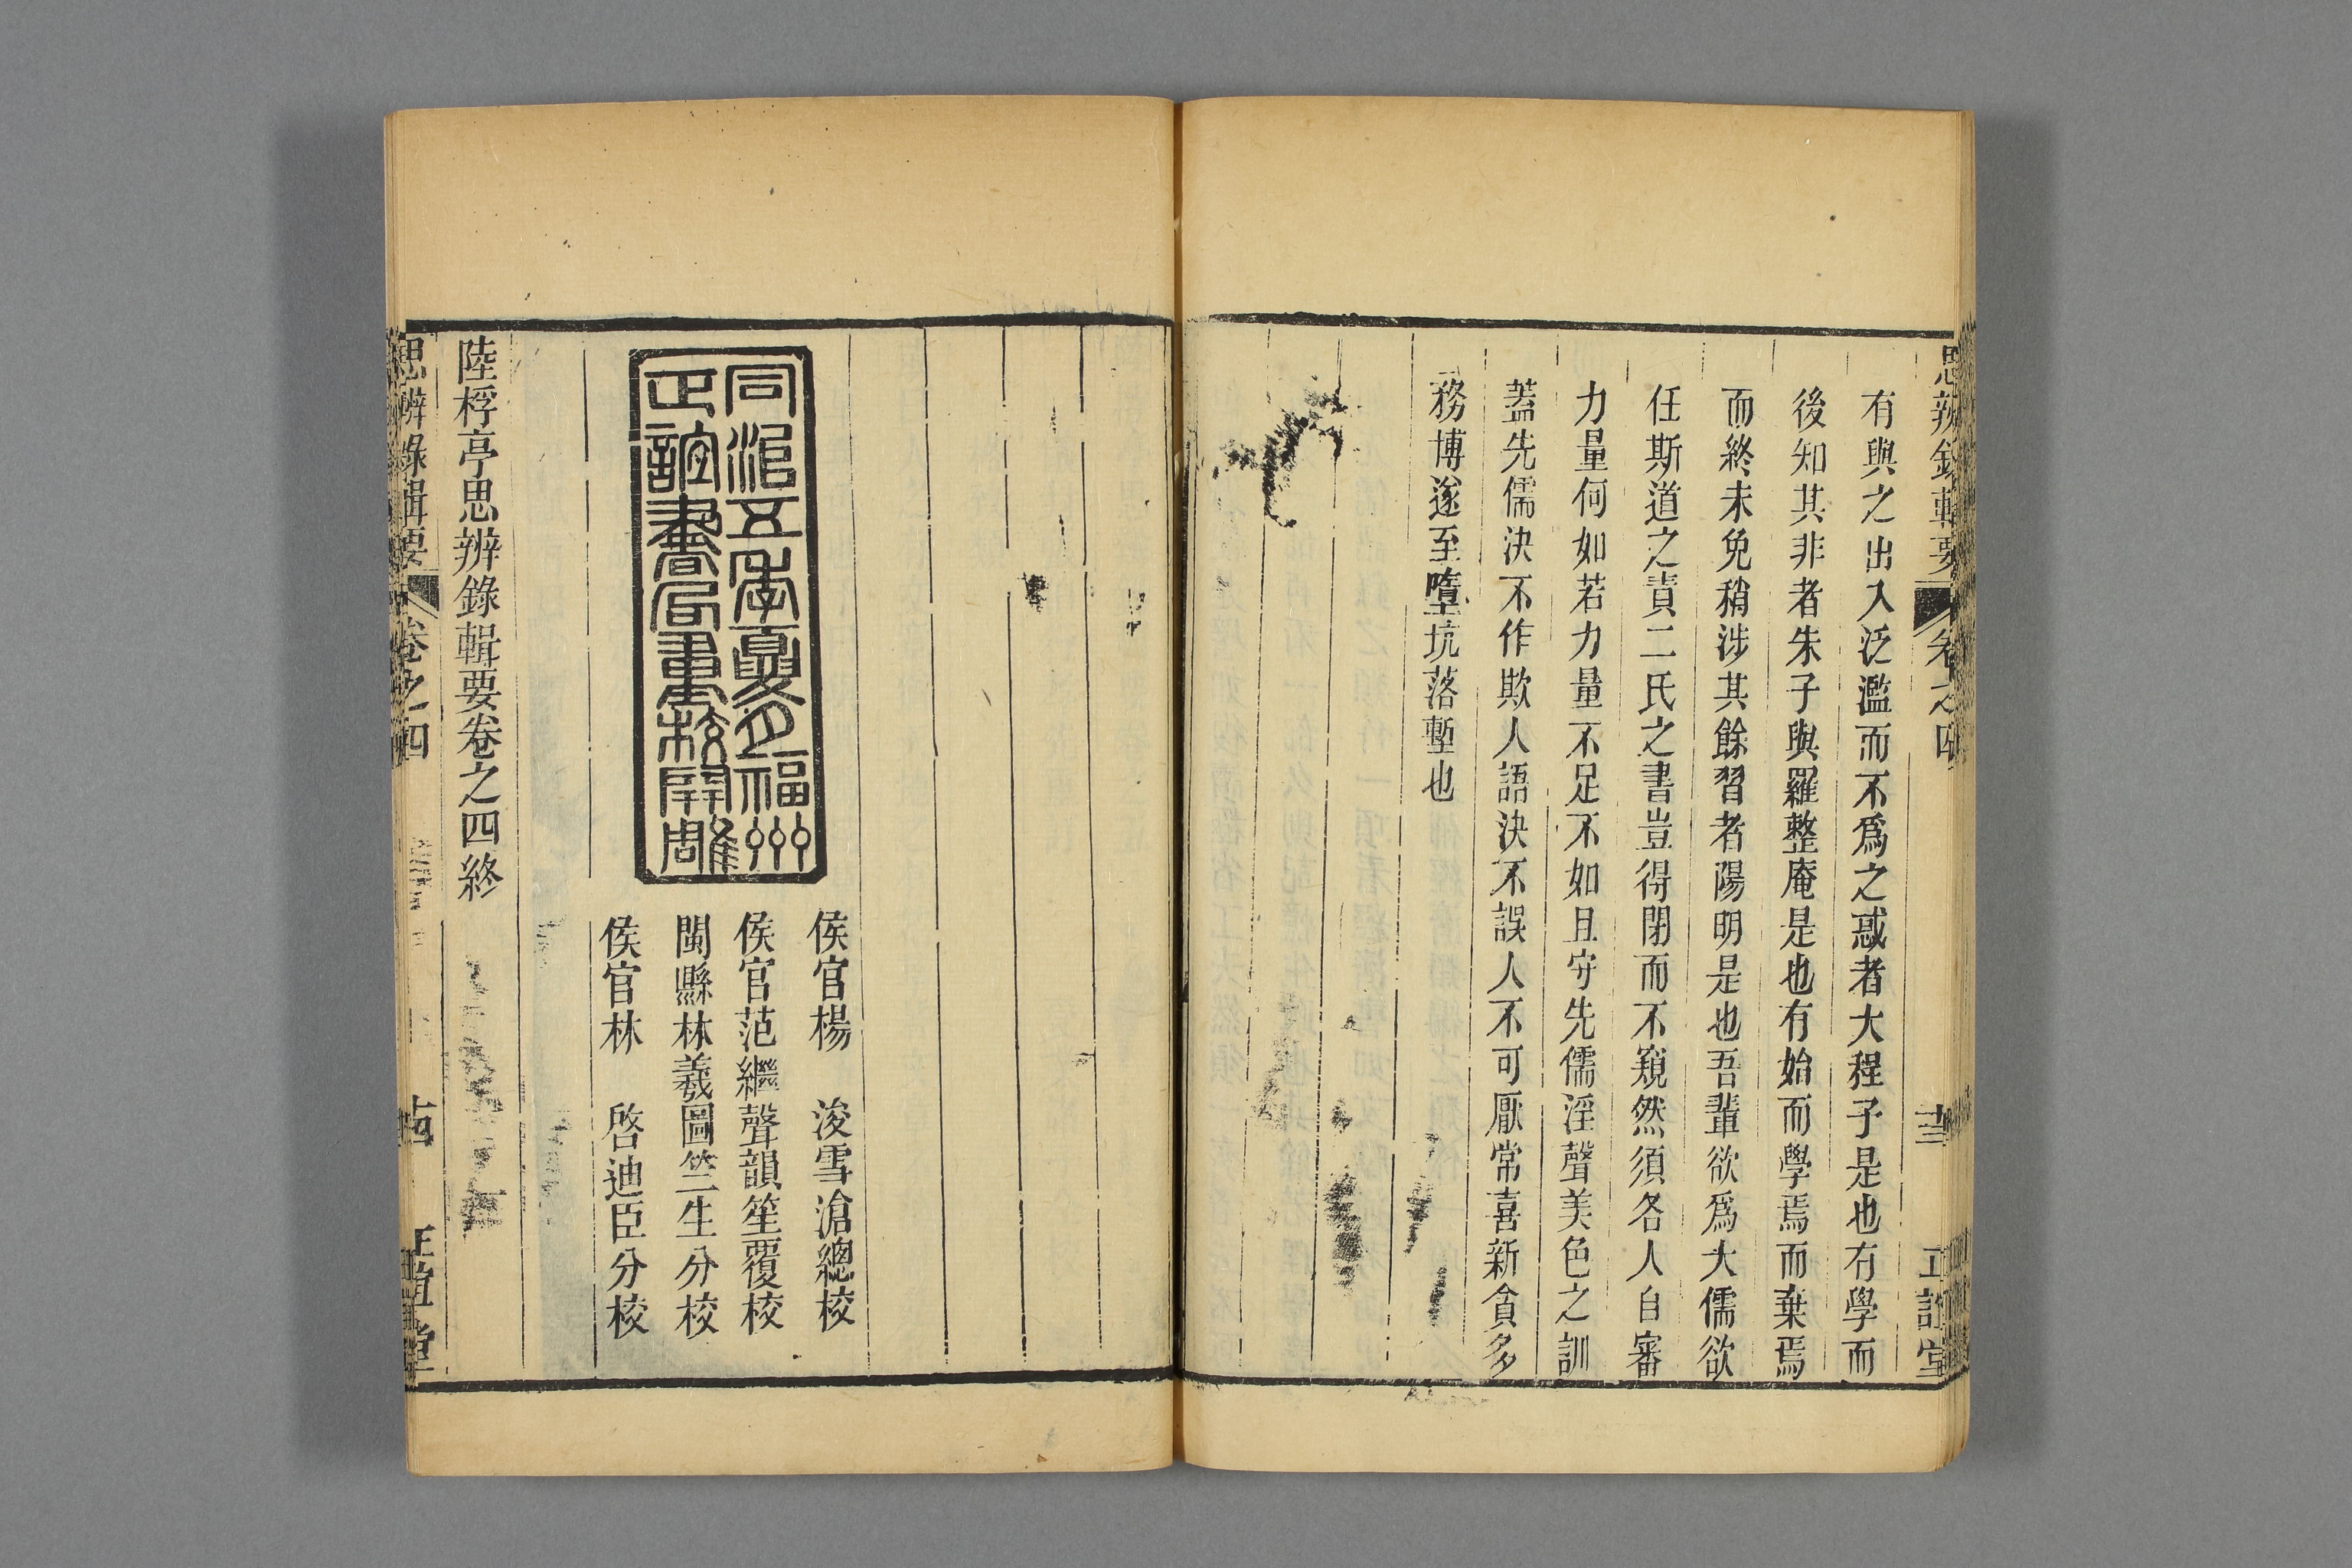 思辨錄輯要 卷之四 十三 正誼堂
有與之出入泛濫而不爲之惑者大程子是也有學而
後知其非者朱子與羅整庵是也有始而學焉而棄焉
而終未免稍涉其餘習者陽明是也吾輩欲爲大儒欲
任斯道之責二氏之書豈得閉而不窺然須各人自審
力量何如若力量不足不如且守先儒淫聲美色之訓
蓋先儒決不作欺人語決不誤人不可厭常喜新貪多
務博遂至墮坑落塹也
同治五年夏月福州
正誼書局重校開雕
侯官楊浚雪滄總校
侯官范繼聲韻笙覆校
閩縣林羲圖竺生分校
侯官林啓迪臣分校
陸桴亭思辨錄輯要卷之四終
思辨錄輯要 卷之四 十四 正誼堂